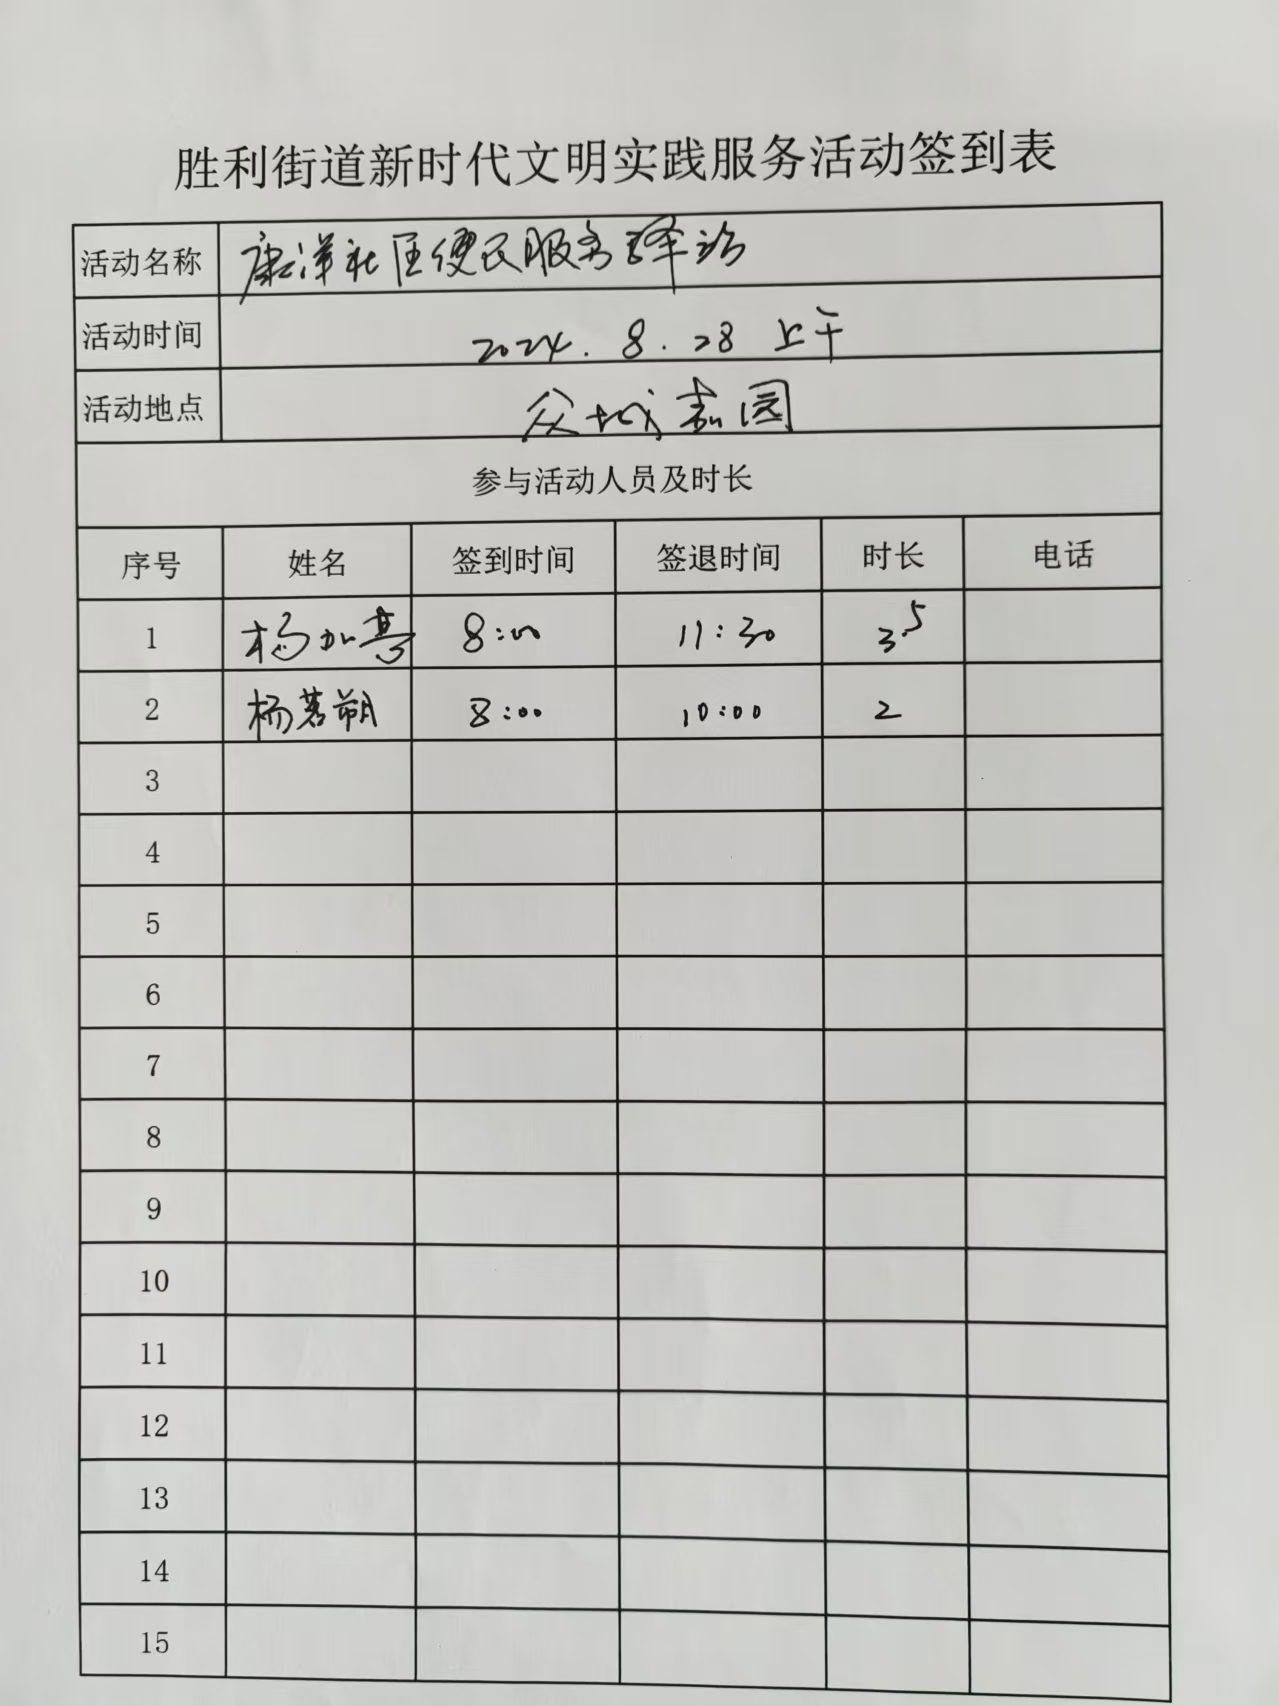 胜利街道新时代文明实践服务活动签到表
活动名称 康洋社区便民服务驿站
活动时间 2024.8.28 上午
活动地点 众城嘉园
参与活动人员及时长
序号 姓名 签到时间 签退时间 时长 电话
1 杨加 8:00 11:30 3.5
2 杨茗朔 8:00 10:00 2
3
4
5
6
7
8
9
10
11
12
13
14
15